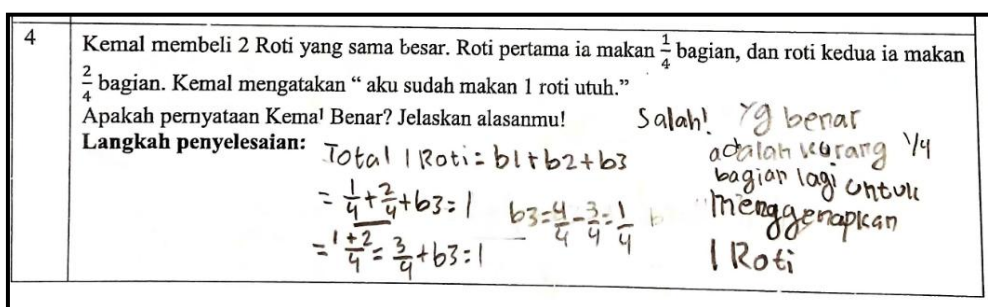 4
Kemal membeli 2 Roti yang sama besar. Roti pertama ia makan 1/4 bagian, dan roti kedua ia makan
2/4 bagian. Kemal mengatakan “ aku sudah makan 1 roti utuh.”
Apakah pernyataan Kemal Benar? Jelaskan alasanmu!
Langkah penyelesaian:
Total 1 Roti = b1+b2+b3
= 1/4 + 2/4 + b3 = 1
= 1+2/4 = 3/4 + b3 = 1
b3 = 4/4 - 3/4 = 1/4
Salah! yg benar
adalah kurang 1/4
bagian lagi untuk
menggenapkan
1 Roti